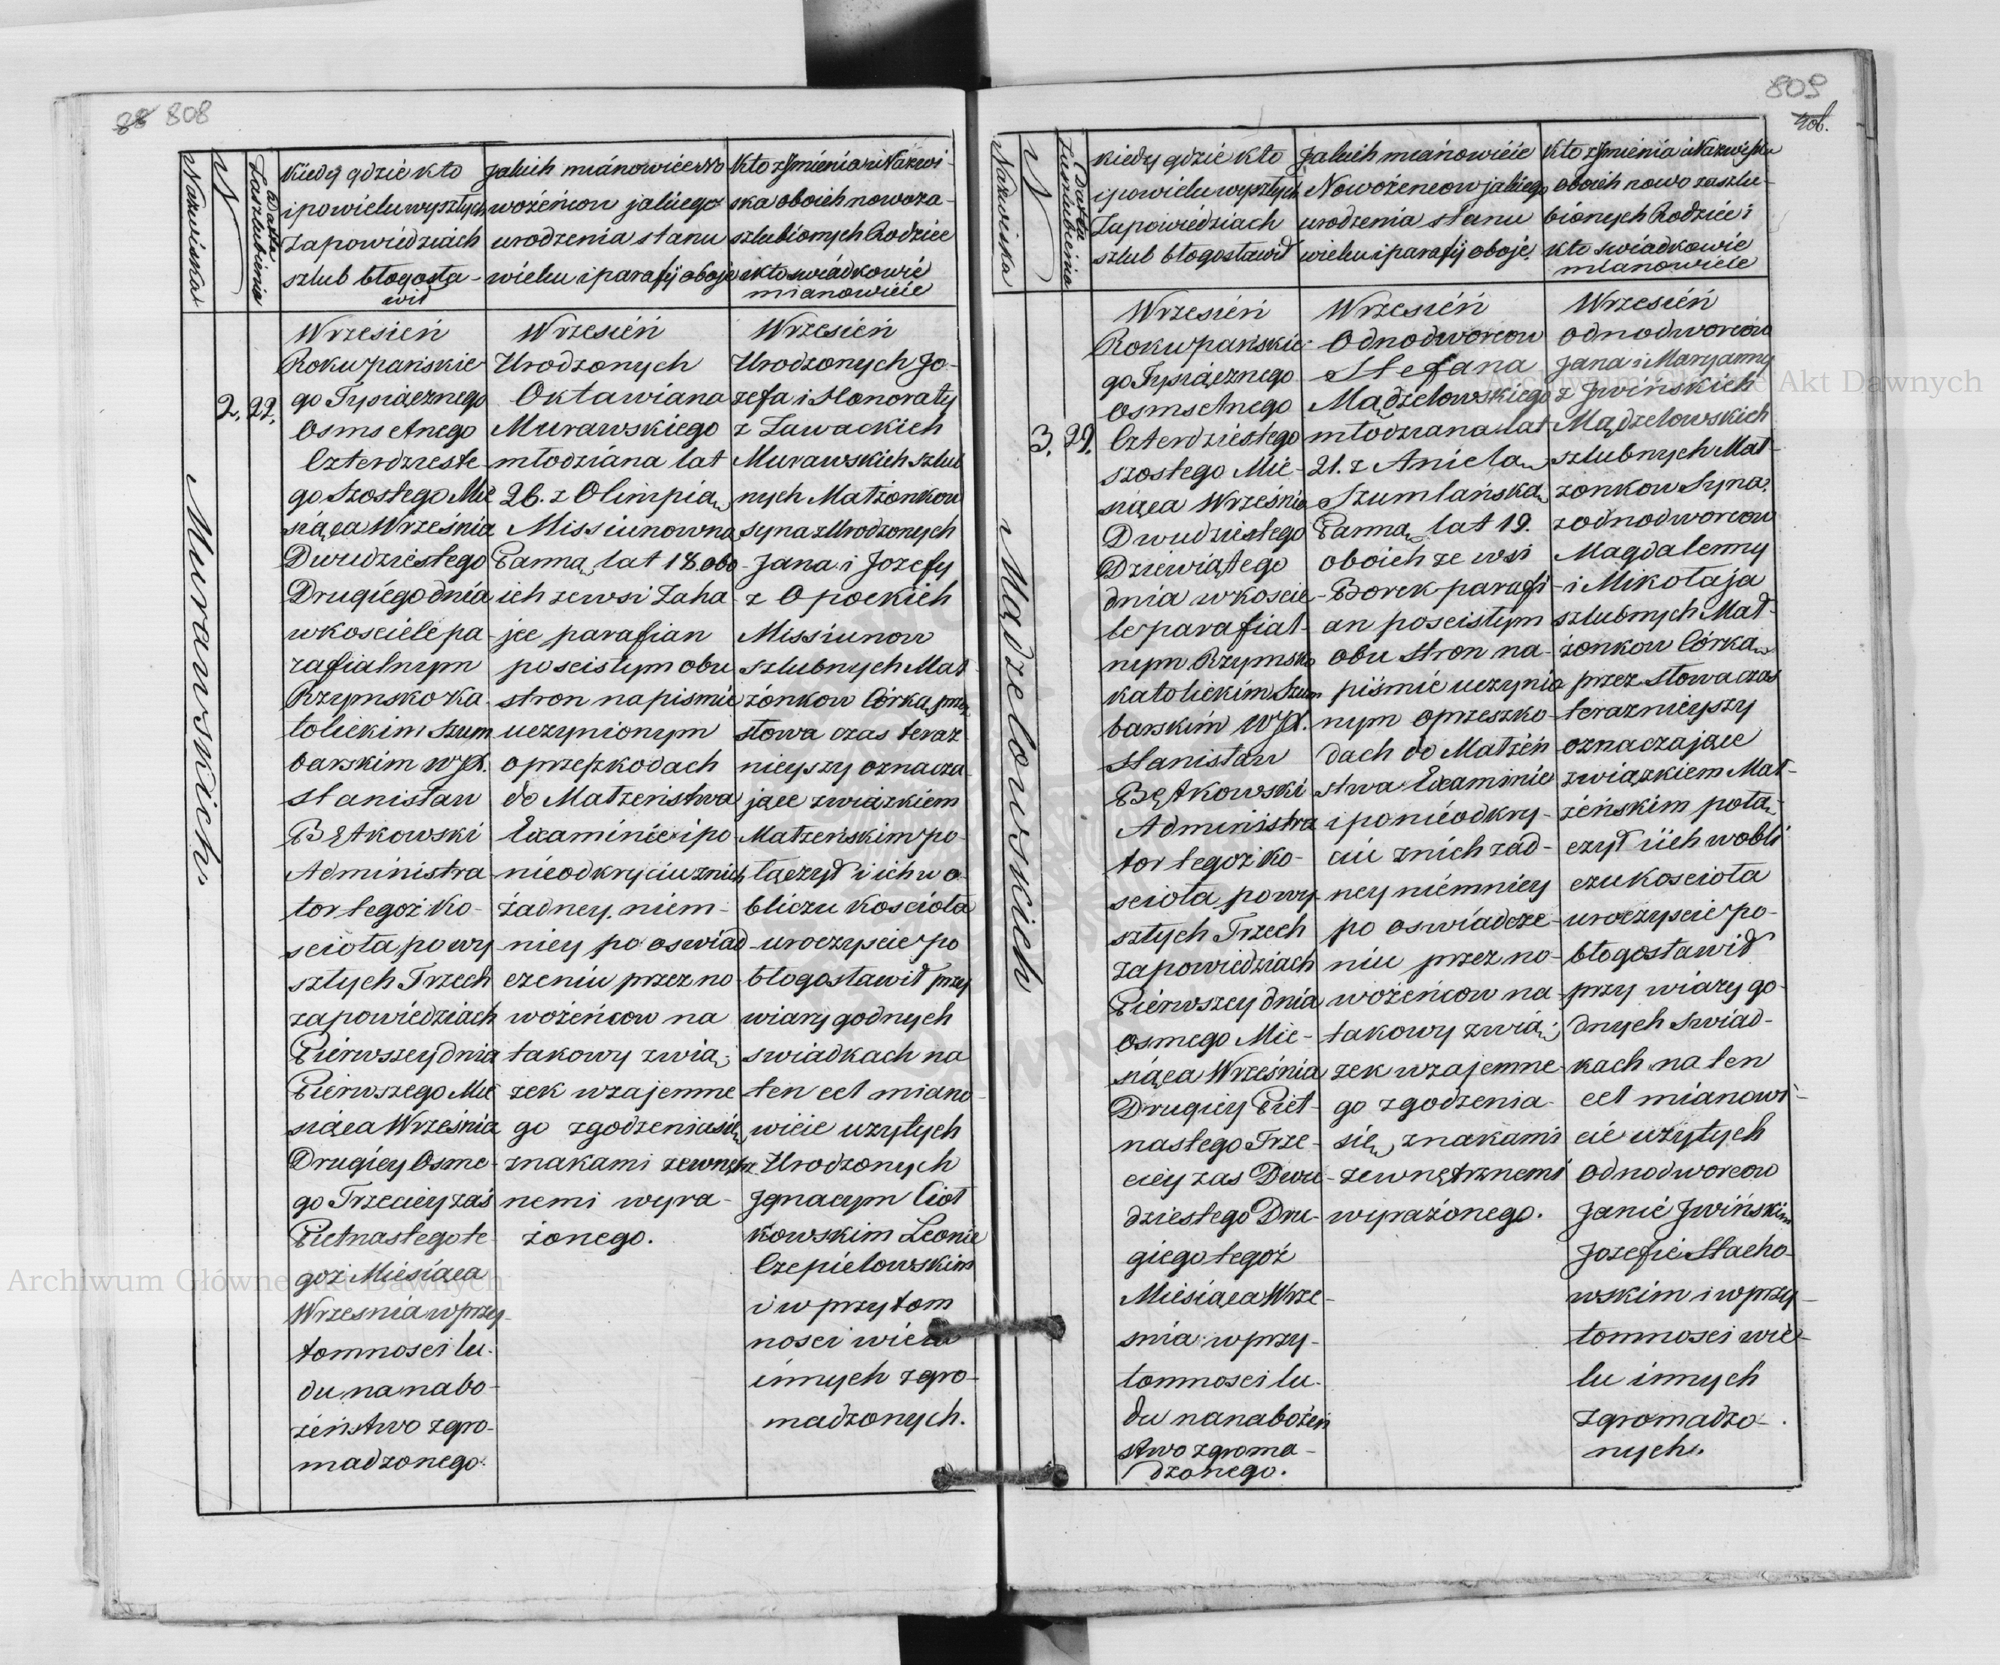 88 808
Nazwiska
N
Datta
Zaszlubienia
Kiedy gdzie kto
i powielu wyszłych
Zapowiedziach
szlub błogosła-
wił
Jakich mianowicie No
wożeńcow jakiego
urodzenia stanu
wieku i parafij oboje
Kto z Jmienia i Nazwi-
ska oboich nowoza-
szlubionych Rodzice
i kto swiadkowie
mianowicie
Murawskich
2.
22.
Wrzesień
Roku pańskie
go Tysiącznego
Osmsetnego
Czterdzieste
go szostego Mie
siąca Września
Dwudziestego
Drugiego dnia
w kosciele pa-
rafialnym
Rzymsko Ka-
tolickim Szum
barskim WJX.
Stanisław
Bętkowski
Administra-
tor tegoż Ko-
scioła po wy
szłych Trzech
zapowiedziach
Pierwszey dnia
Pierwszego Mie
siąca Września
Drugiey Osme-
go Trzeciey zaś
Pietnastego te-
goż Miesiąca
Wrzesnia w przy-
tomnosci lu-
du na nabo-
żeństwo zgro-
madzonego.
Wrzesień
Urodzonych
Oktawiana
Murawskiego
młodziana lat
26. z Olimpią
Missiunowną
Panną lat 18. obo-
ich ze wsi Zaha-
jce parafian
po scisłym obu
stron na pismie
uczynionym
o przeszkodach
do Małżeństwa
Examinie i po-
nieodkryciu z nich
żadney, niem-
niey po oswiad-
czeniu przez no-
wożeńcow na
takowy zwią-
zek wzajemne
go zgodzenia się
znakami zewnętrz
nemi wyra-
żonego.
Wrzesień
Urodzonych Jo-
zefa i Honoraty
z Zawackich
Murawskich szlub
nych Małżonkow
Syna z Urodzonych
Jana i Jozefy
z Opockich
Missiunow
szlubnych Mał-
żonkow Córką przez
słowa czas teraz-
nieyszy oznacza-
jące związkiem
Małżeńskim po-
łączył i ich w o-
bliczu Kościoła
uroczyscie po
błogosławił przy
wiary godnych
swiadkach na
ten cel miano-
wicie użytych
Urodzonych
Jgnacym Ciot
kowskim Leonie
Czepielowskim
i w przytom
nosci wielu
innych zgro-
madzonych.
809
Nazwiska
N
Datta
Zaszlubienia
Kiedy gdzie kto
i powielu wyszłych
Zapowiedziach
szlub błogosławił
Jakich mianowicie
Nowożeńcow jakiego
urodzenia stanu
wieku i parafij oboje.
Kto z Jmienia i Nazwiska
oboich nowo zaszlu-
bionych Rodzice i
kto swiadkowie
mianowicie
Mądzelowskich
3.
29.
Wrzesień
Roku pańskie-
go Tysiącznego
Osmsetnego
Czterdziestego
szostego Mie-
siąca Września
Dwudziestego
Dziewiątego
dnia w koscie-
le parafial-
nym Rzymsko
katolickim Szum
barskim WJX.
Stanisław
Bętkowski
Administra
tor tegoż ko-
scioła po wy
szłych Trzech
zapowiedziach
Pierwszey dnia
osmego Mie-
siąca Września
Drugiey Piet-
nastego Trze-
ciey zas Dwu-
dziestego Dru-
giego tegoż
Miesiąca Wrze-
śnia w przy-
tomnosci lu-
du na nabożeń
stwo zgroma-
dzonego.
Wrzesień
Odnodworcow
Stefana
Mądzelowskiego
młodziana lat
21. z Anielą
Szumlańską
Panną lat 19.
oboich ze wsi
Borek parafi-
an po scisłym
obu stron na-
piśmie uczynio
nym o przeszko-
dach do Małżeń
stwa Examinie
i po nieodkry-
ciu z nich żad-
ney niemniey
po oswiadcze-
niu przez no-
wożeńcow na-
takowy zwią-
zek wzajemne-
go zgodzenia
się znakami
zewnętrznemi
wyrażonego.
Wrzesień
Odnodworców
Jana i Maryanny
z Jwińskich
Mądzelowskich
szlubnych Mał-
żonkow Syna,
z odnodworcow
Magdalenny
i Mikołaja
szlubnych Mał-
żonkow Córką
przez słowa czas
teraznieyszy
oznaczające
związkiem Mał-
żeńskim połą-
czył i ich w obli
czu kosciola
uroczyscie po-
błogosławił
przy wiary go-
dnych swiad-
kach na ten
cel mianowi-
cie użytych
Odnodworcow
Janie Jwińskim
Jozefie Stacho-
wskim i w przy-
tomnosci wie-
lu innych
zgromadzo-
nych.
Archiwum Główne Akt Dawnych
Archiwum Główne Akt Dawnych